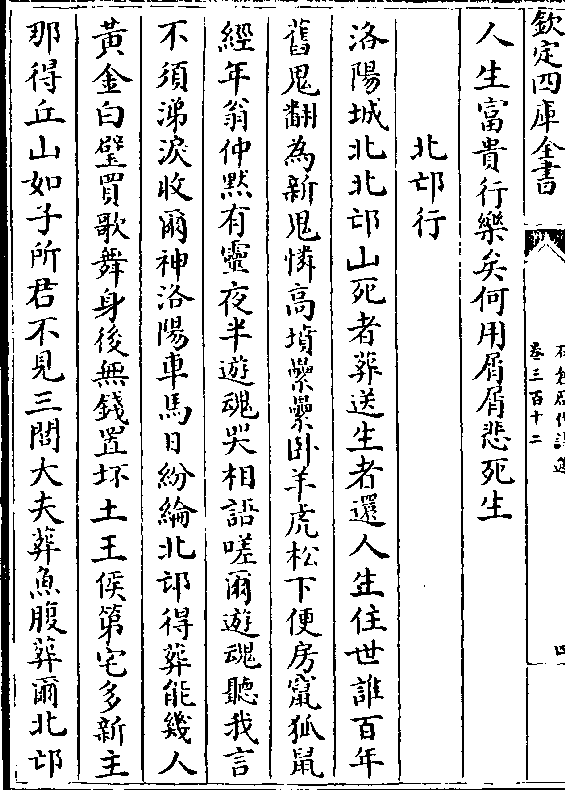 欽定四庫全書
卷三百十二
四
人生富貴行樂矣何用屑屑悲死生
北邙行
洛陽城北北邙山死者葬送生者還人生住世誰百年
舊鬼翻為新鬼憐高墳纍纍卧羊虎松下便房竄狐鼠
經年翁仲黙有靈夜半遊魂哭相語嗟爾遊魂聽我言
不須涕淚收爾神洛陽車馬日紛綸北邙得葬能幾人
黄金白璧買歌舞身後無錢置坏土王侯第宅多新主
那得丘山如子所君不見三閭大夫葬魚腹葬爾北邙